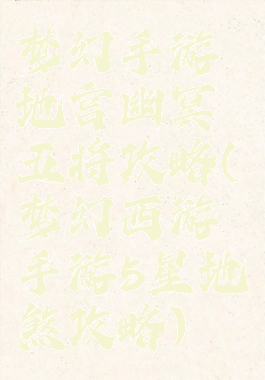 梦幻手游
地宫幽冥
五将攻略(
梦幻西游
手游5星地
煞攻略)